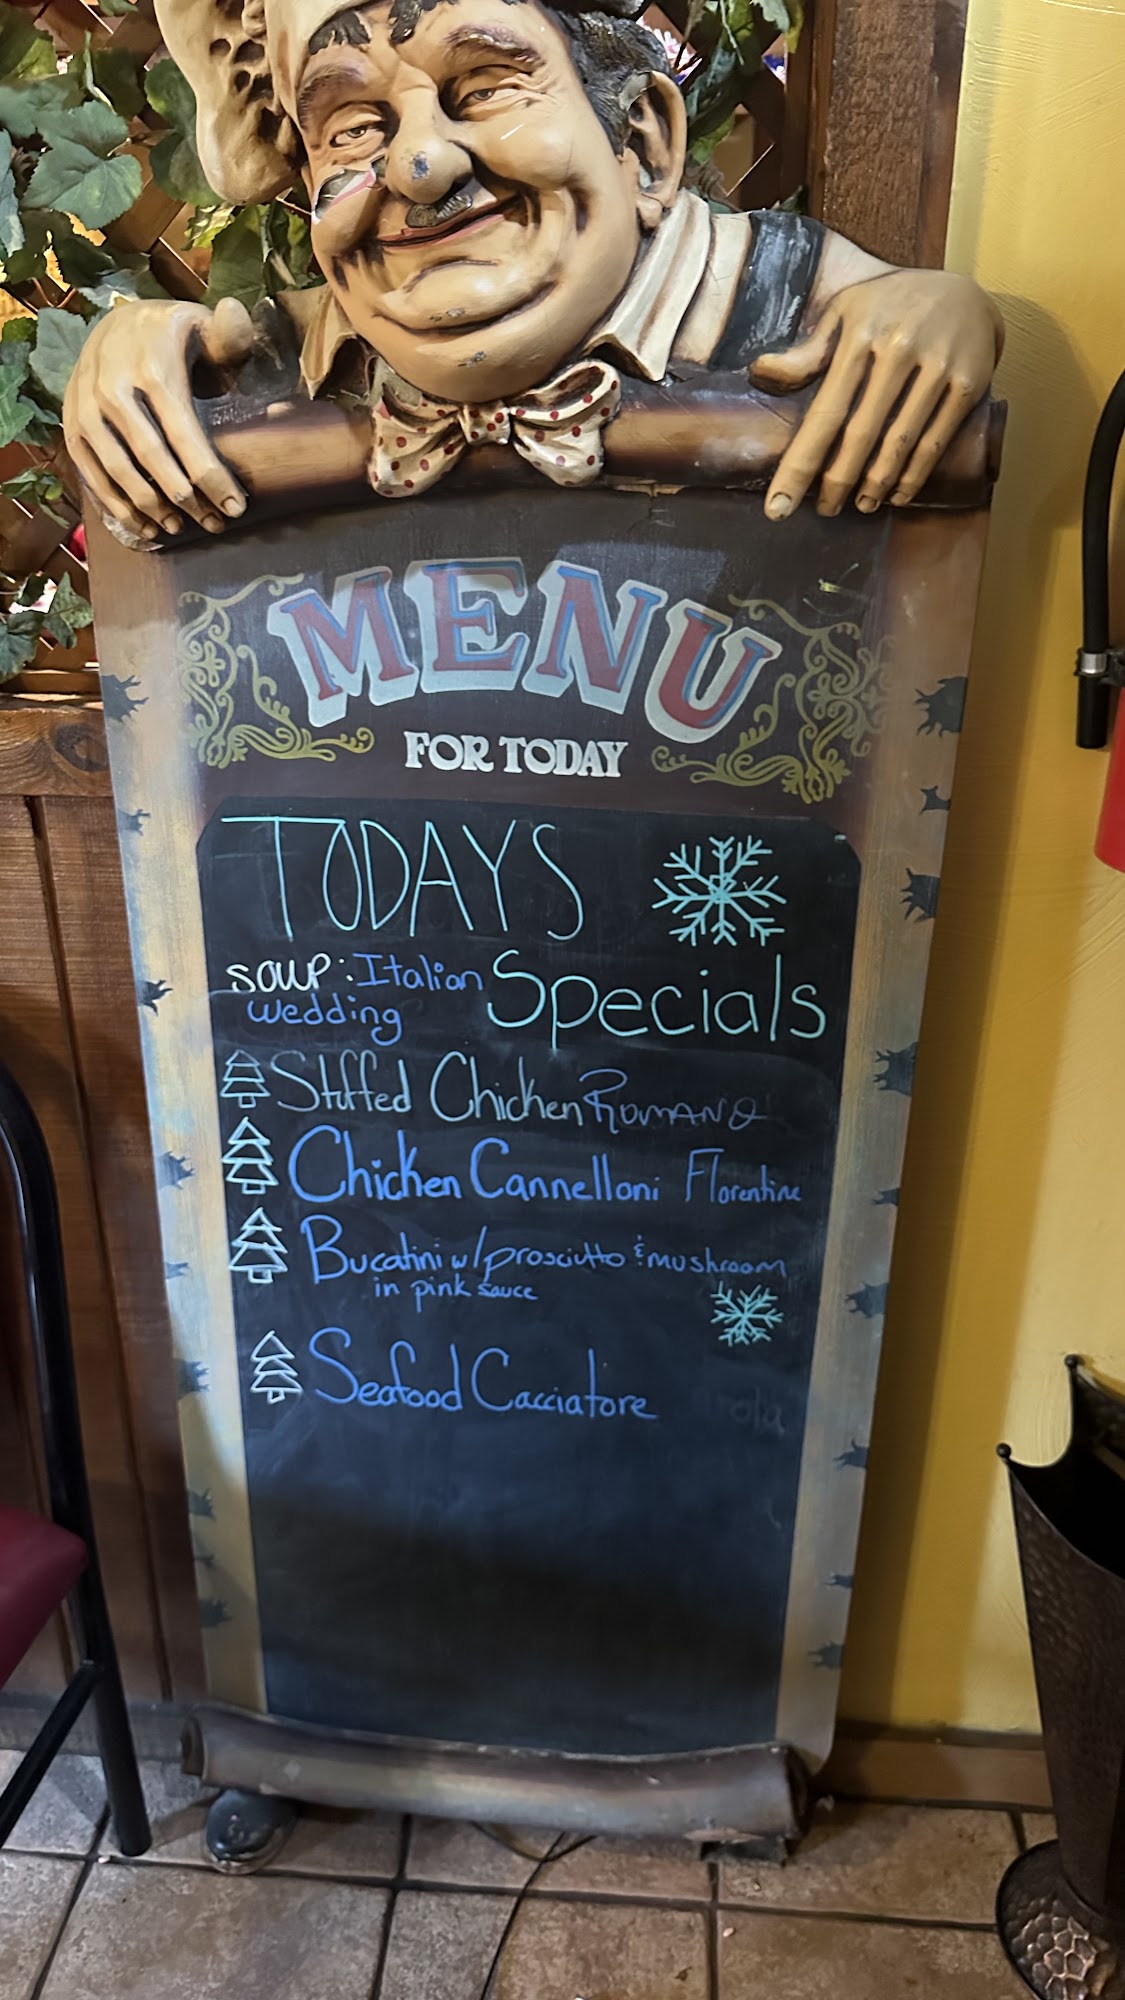 MENU
FOR TODAY
TODAYS
Specials
soup: Italian
wedding
Stuffed Chicken ROMANO
Chicken Cannelloni Florentine
Bucatini w/prosciutto & mushroom
in pink sauce
Seafood Cacciatore